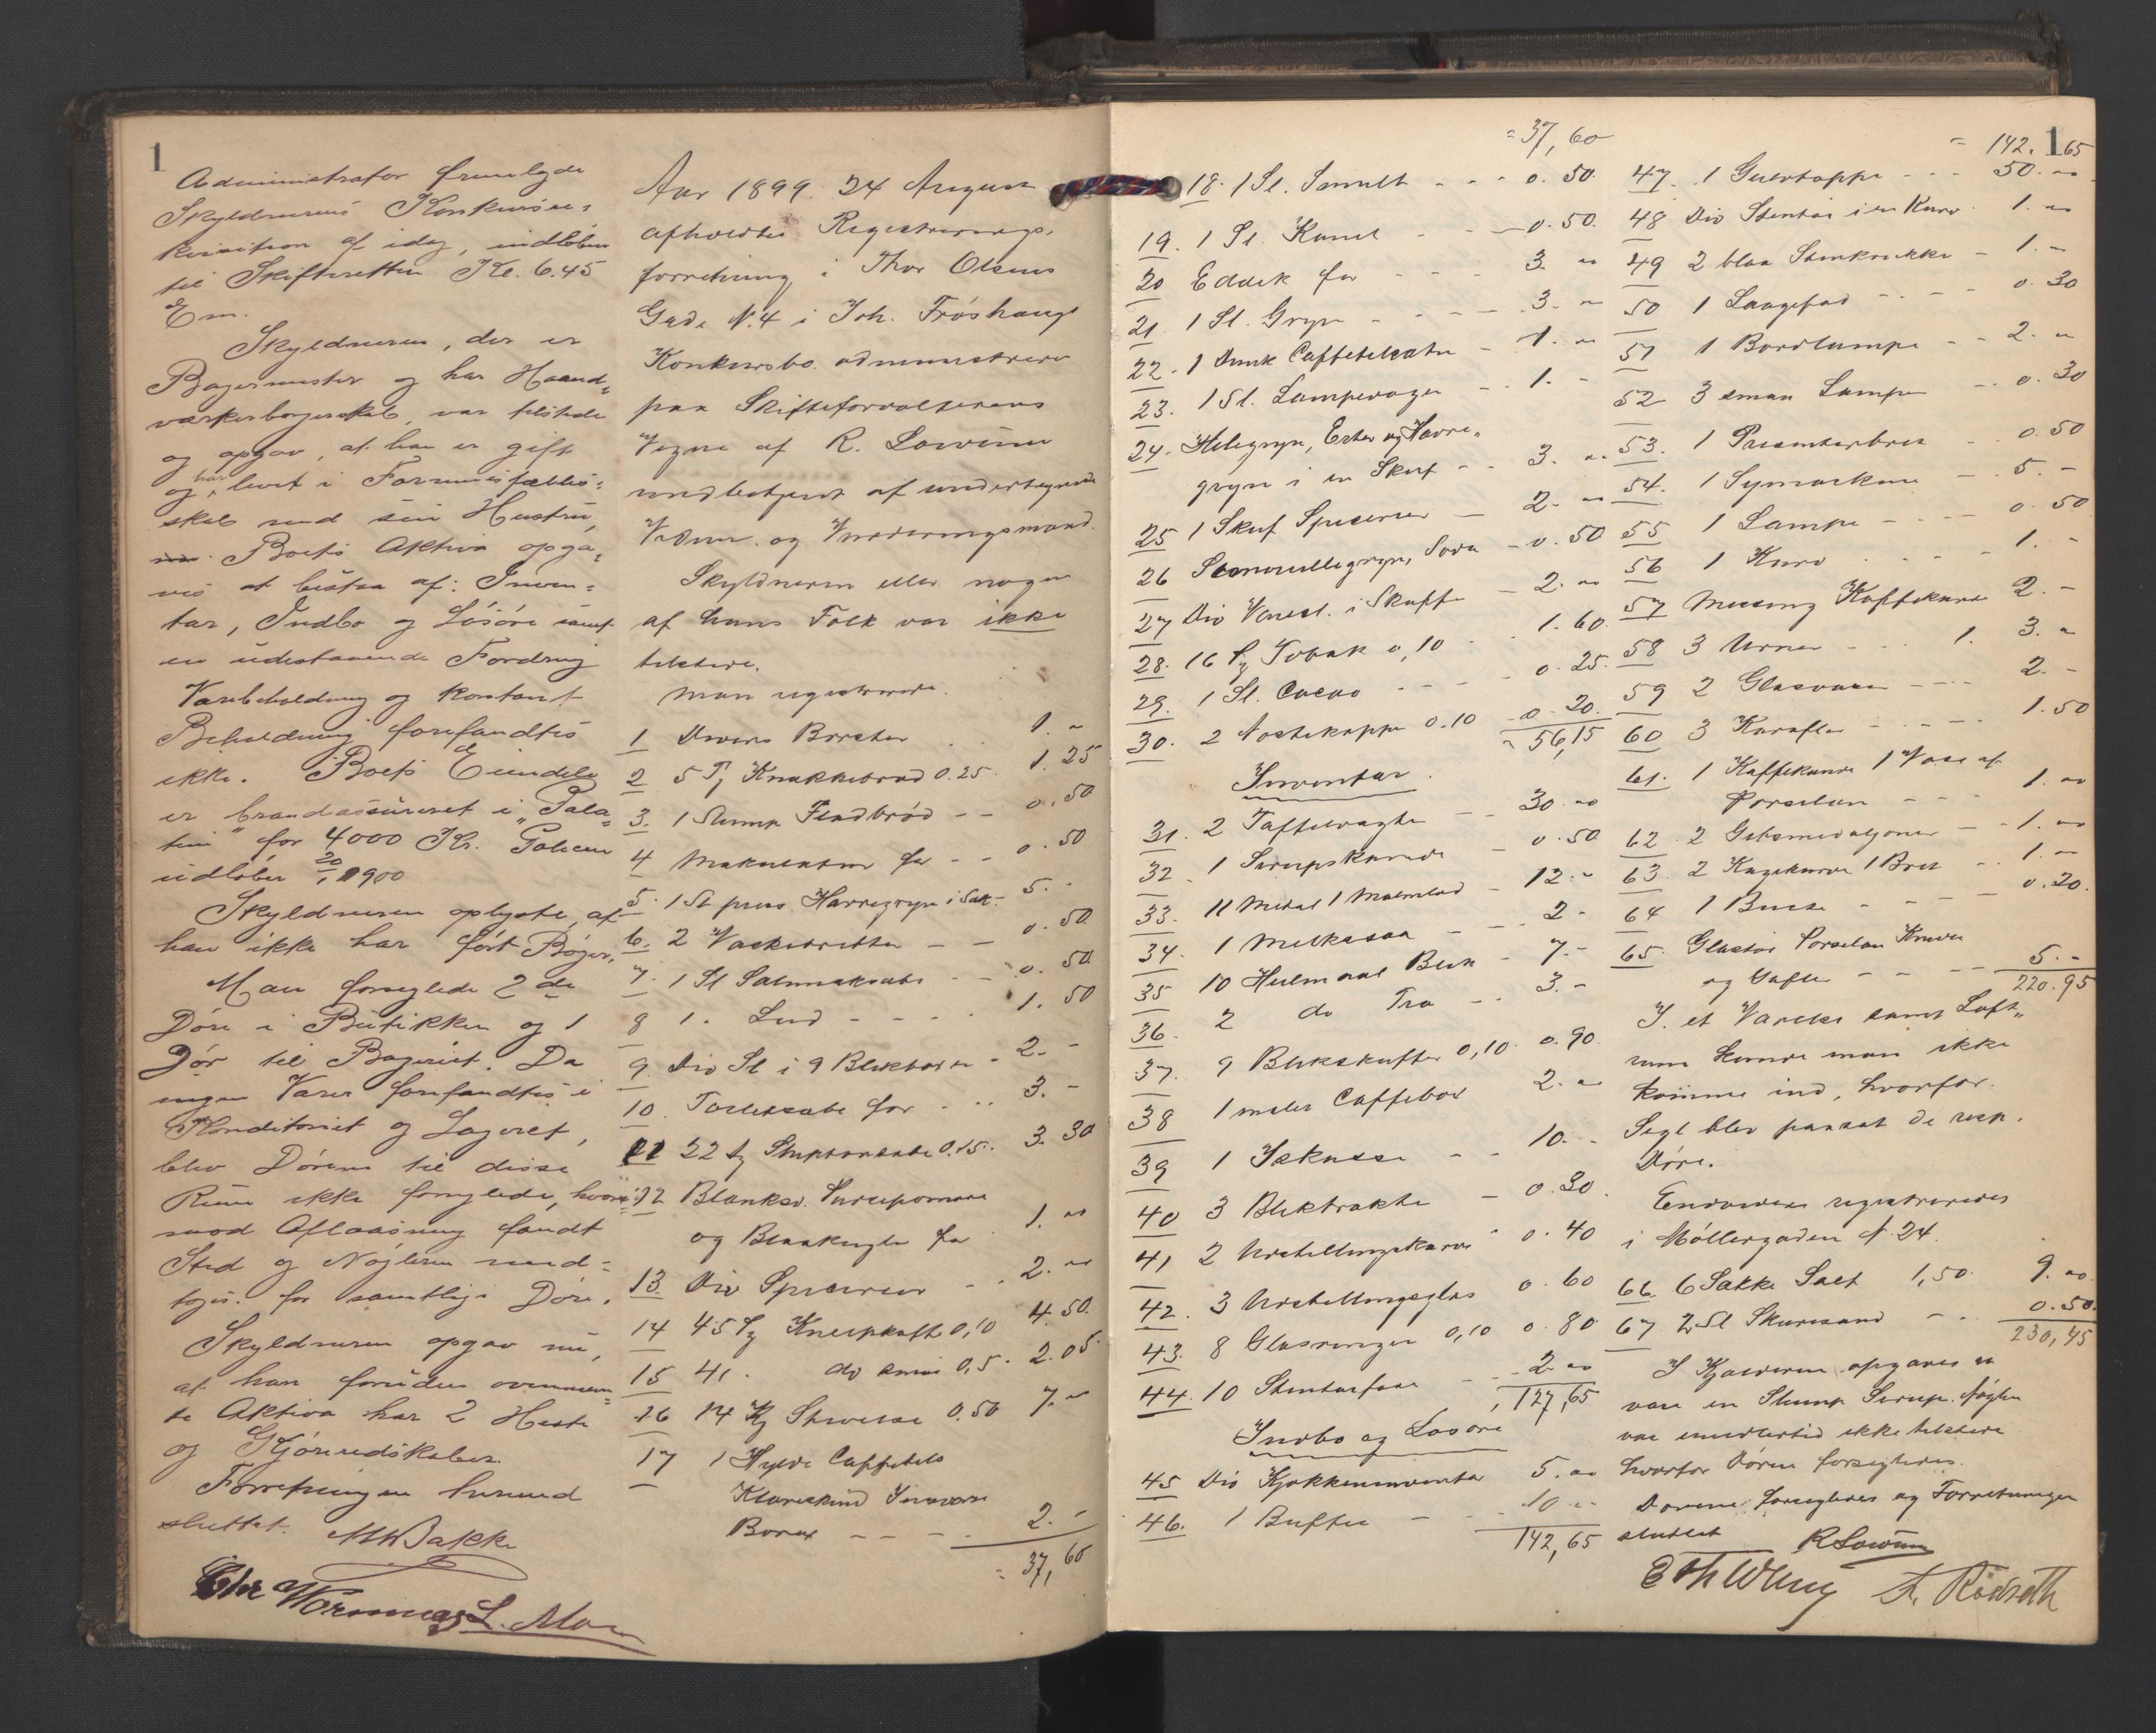 1
Administrator fremlagde
Skyldnerens Konkursre=
kvisition af idag, indløben
til Skifteretten Kl. 6.45
Em.
Skyldneren, der er
Bagermester og har Haand=
værkerborgerskab, var tilstede
og opgav, at han er gift
og har levet i Formuesfælles=
skab med sin Hustru,
Boets Aktiva opga=
ves at bestaa af: Inven=
tar, Indbo og Løsøre samt
en udestaaende Fordring
Varebeholdning og kontant
Beholdning forefandtes
ikke. Boets Eiendele
er brandassureret i "Pala=
tin" for 4000 Kr. Policen
udløber 20/1 1900
Skyldneren oplyste, at
han ikke har ført Bøger.
Man forseglede 2 de
Døre i Butikken og 1
Dør til Bageriet. Da
ingen Varer forefandtes i
Konditoriet og Lageret,
blev Dørene til disse
Rum ikke forseglede, hvori=
mod Aflaasning fandt
Sted og Nøglerne med=
toges for samtlige Døre.
Skyldneren opgav nu,
at han foruden ovennævn=
te Aktiva har 2 Heste
og Kjøreredskaber.
Forretningen hermed
sluttet. MWBakke
Chr Wormnes L. Moe
Aar 1899. 24 August
afholdtes Registrerings.
forretning i Thor Olsens
Gade N. 4 i Joh. Frøshaugs
Konkursbo. administreret
paa Skifteforvalterens
Vegne af R. Sawin
med betjent af undertegnede
Vidner og Vurderingsmænd.
Skyldneren eller nogen
af hans Folk var ikke
tilstede.
Man registrerede.
1 Divers Børster . . 1. "
2 5 Pj Knækkebrød 0.25. 1. 25
3. 1 Slump Fladbrød - - 0. 50
4 Makulatur for - - 0. 50
5. 1 Sl pres. Havregryn i Sæk - 5. -
6. 2 Vaskebretter - - 0. 50
7. 1 Sl Salmiaksabe - - 0. 50
8 1. Lud - - - 1. 50
9. Div Sl i 9 Blikbokse - 2. -
10. Toiletsabe for - .. 3. -
11 22 St Stuptonsabe 0.15. 3. 30
12 Blanksv.
og Blaakugler for 1. "
13. Div Specerier - . 2. "
14 45 St Kneipkaffe 0,10 4. 50.
15 41. do smaa 0,5. 2. 05.
16 14 Kg Stivelse 0.50 7. "
17 1 Hylde Caffetils
Klareskind
Borax - - - . 2. -
= 37, 60
= 37, 60
18. 1 Sl. Smult - - - 0. 50.
19. 1 Sl. Kanel - - - 0. 50.
20 Eddik for - - - 3. "
21. 1 Sl. Gryn - - - - 3. "
22. 1 Dunk Caffetilsats - 1. "
23. 1 Sl. Lampevæger - . 1. -
24. Helegryn, Erter og Havre"
gryn i en Skuf - - 3. "
25 1 Skuf Specerier - 2. "
26 Semoullegryn, Soda - 0. 50
27 Div Varesl. i Skuffe - 2. "
28. 16 St Tobak 0,10 . 1. 60.
29. 1 Sl. Cacao - - - 0. 25.
30. 2 Nostekopper 0.10 - 0. 20.
" 56,15
Inventar.
31. 2 Taffelvægte - - 30. "
32. 1 Sirupskande - 0. 50
33. 11 Metal 1 Malmlod - 12. "
34. 1 Melkesaa - - - 2. -
35 10 Hulmaal Blik - 7. -
36. 2 do Træ - . 3. -
37. 9 Blikskuffer 0,10. 0. 90.
38 1 malet Caffeboks 2. "
39 1 Iskasse - - 10. -
40 3 Bliktrakter - 0. 30.
41, 2 Udstillingskurve " 0. 40
42. 3 Udstillingsglas 0. 60
43. 8 Glasringer 0,10 0. 80
44. 10 Stentøifade - - 2. "
127,65
Indbo og Løsøre
45 Div Kjøkkeninventar 5. "
46. 1 Buffet - - . 10 "
142,65
= 142. 65
1
47. 1 Gulvtæppe - - - 50. "
48 Div Stentøi i en Kurv . 1. "
49 2 blaa Stenkrukker - 1. "
50 1 Laagefad - - - - 0. 30
51 1 Bordlampe - - 2. "
52 3 smaa Lamper - . 0. 30
53. 1 Præsenterbret - 0. 50
54. 1 Symaskine - . 5. -
55 1 Lampe - - - - 0. 50
56 1 Kurv . - - - 1. -
57 Messing Kaffekande 2. -
58 3 Urner - - - 1. 3. "
59 2 Glasvaser - - - - 2. -
60 3 Karafler - - - - 1. 50
61. 1 Kaffekande 1 Vase af
Porselæn - - - 1. "
62. 2 Gibsmedaljoner - - 1. "
63. 2 Kagekurve 1 Bret - . 1. "
64 1 Buste - - - 0. 20.
65. Glastøi Porselæn Knive
og Gafler - - - - 5. -
220. 95
I et Varelse samt Loft"
rum kunde man ikke
komme ind, hvorfor
Segl blev paasat de resp.
Døre.
Endvidere registreredes
i Møllergaden N. 24.
66. 6 Sække Salt 1,50. 9. "
67 2 Sl Skuresand - - 0. 50.
230, 45
I Kjælderen opgaves at
være en Slump Sirup. Nøglen
var imidlertid ikke tilstede
hvorfor Døren forsegledes.
Dørene forsegledes og Forretningen
sluttet R Sawin
A. Rödseth